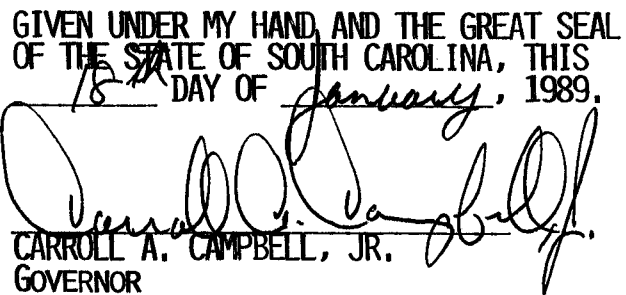 GIVEN UNDER MY HAND AND THE GREAT SEAL
OF THE STATE OF SOUTH CAROLINA, THIS
18th DAY OF January, 1989.
Carroll A. Campbell, Jr.
CARROLL A. CAMPBELL, JR.
GOVERNOR